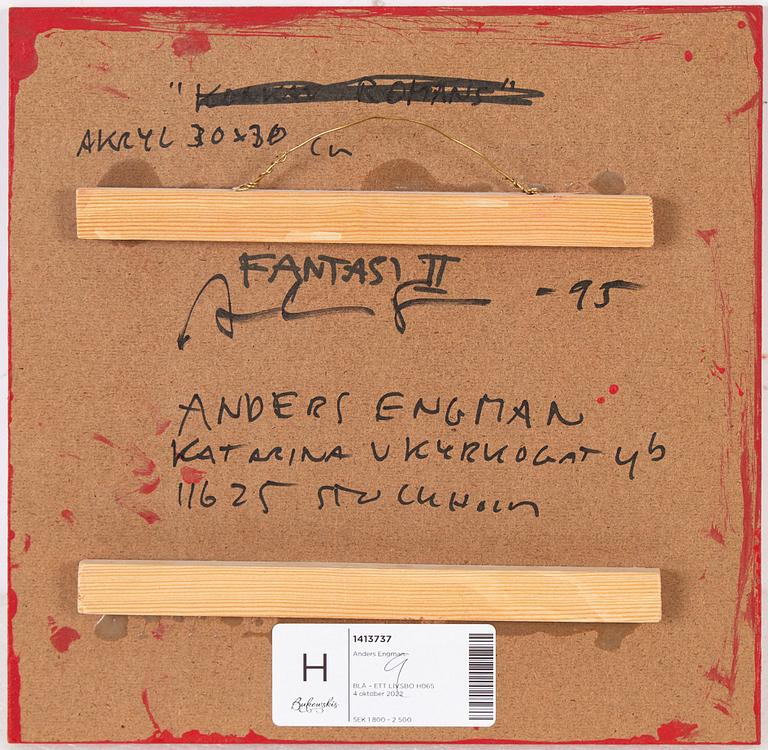 " ROMANS"
AKRYL 30x30 cm
FANTASI II
-95
ANDERS ENGMAN
KATARINA V KYRKOGAT 4b
116 25 STOCKHOLM
H
Bukowskis
1413737
Anders Engman
9
BLÅ - ETT LIVSBO H065
4 oktober 2022
SEK 1 800 - 2 500